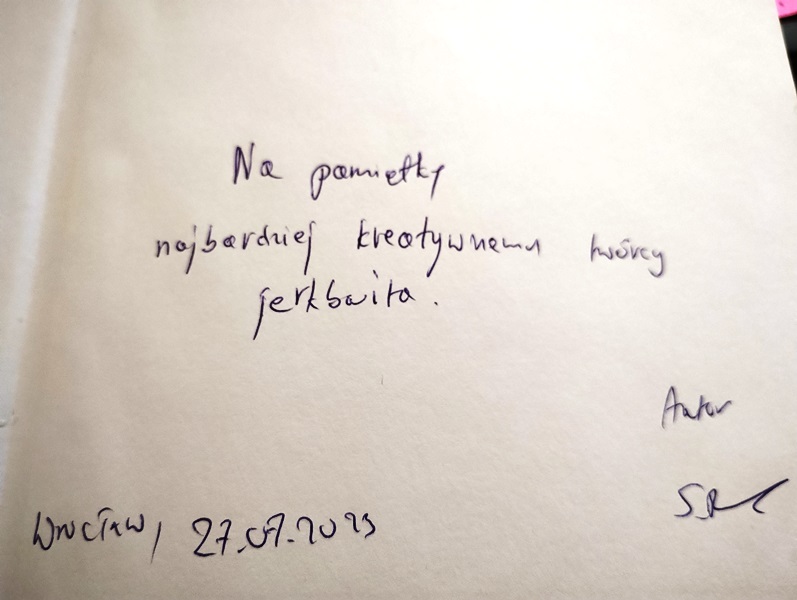 Na pamiętkę
najbardziej kreatywnemu twórcy
jerkbaita.
Autor
Wrocław, 27.07.2023